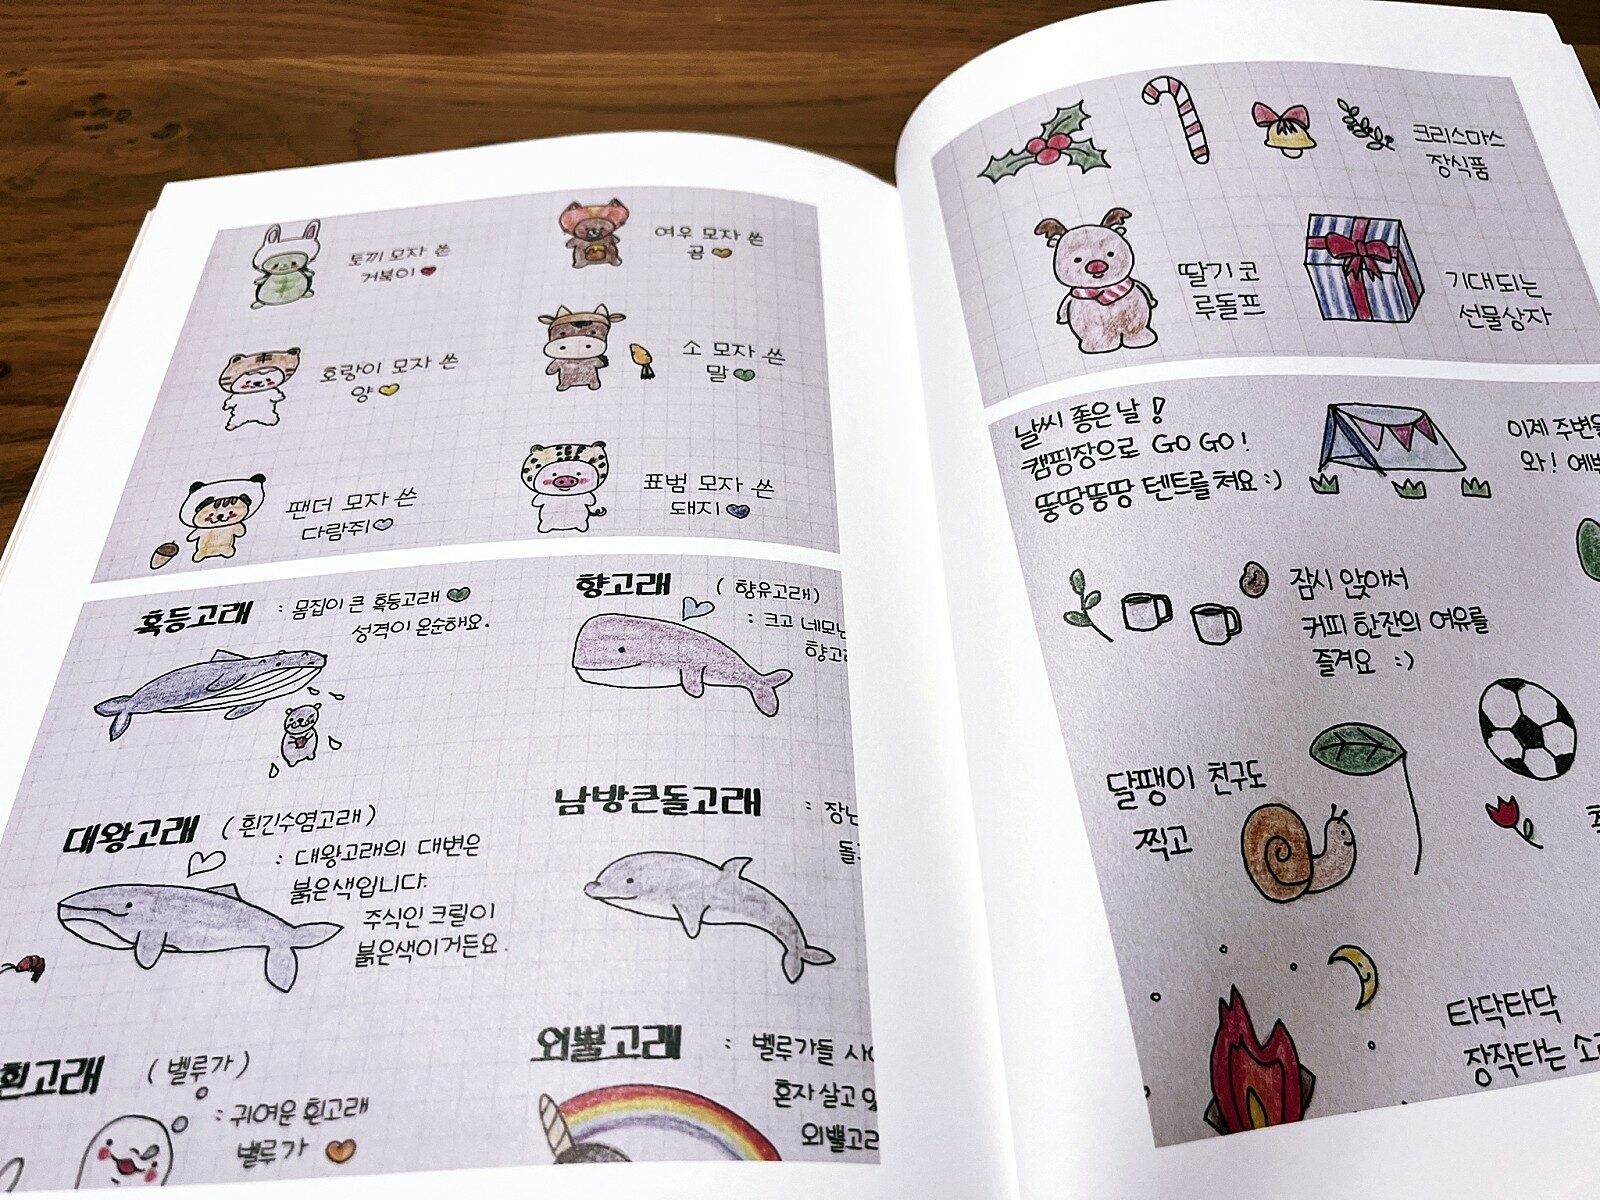 토끼 모자 쓴
거북이
여우 모자 쓴
곰
호랑이 모자 쓴
양
소 모자 쓴
말
팬더 모자 쓴
다람쥐
표범 모자 쓴
돼지
혹등고래
: 몸집이 큰 혹등고래
성격이 온순해요.
향고래
( 향유고래)
: 크고 네모난
향고래
대왕고래 ( 흰긴수염고래 )
: 대왕고래의 대변은
붉은색입니다.
주식인 크릴이
붉은색이거든요.
남방큰돌고래
:
흰고래 ( 벨루가 )
: 귀여운 흰고래
벨루가
외뿔고래
: 벨루가들
혼자 살고
외뿔고래
크리스마스
장식품
딸기 코
루돌프
기대되는
선물상자
날씨 좋은 날 !
캠핑장으로 GO GO !
뚱땅뚱땅 텐트를 쳐요 :)
이제
와!
잠시 앉아서
커피 한잔의 여유를
즐겨요 :)
달팽이 친구도
찍고
타닥타닥
장작타는